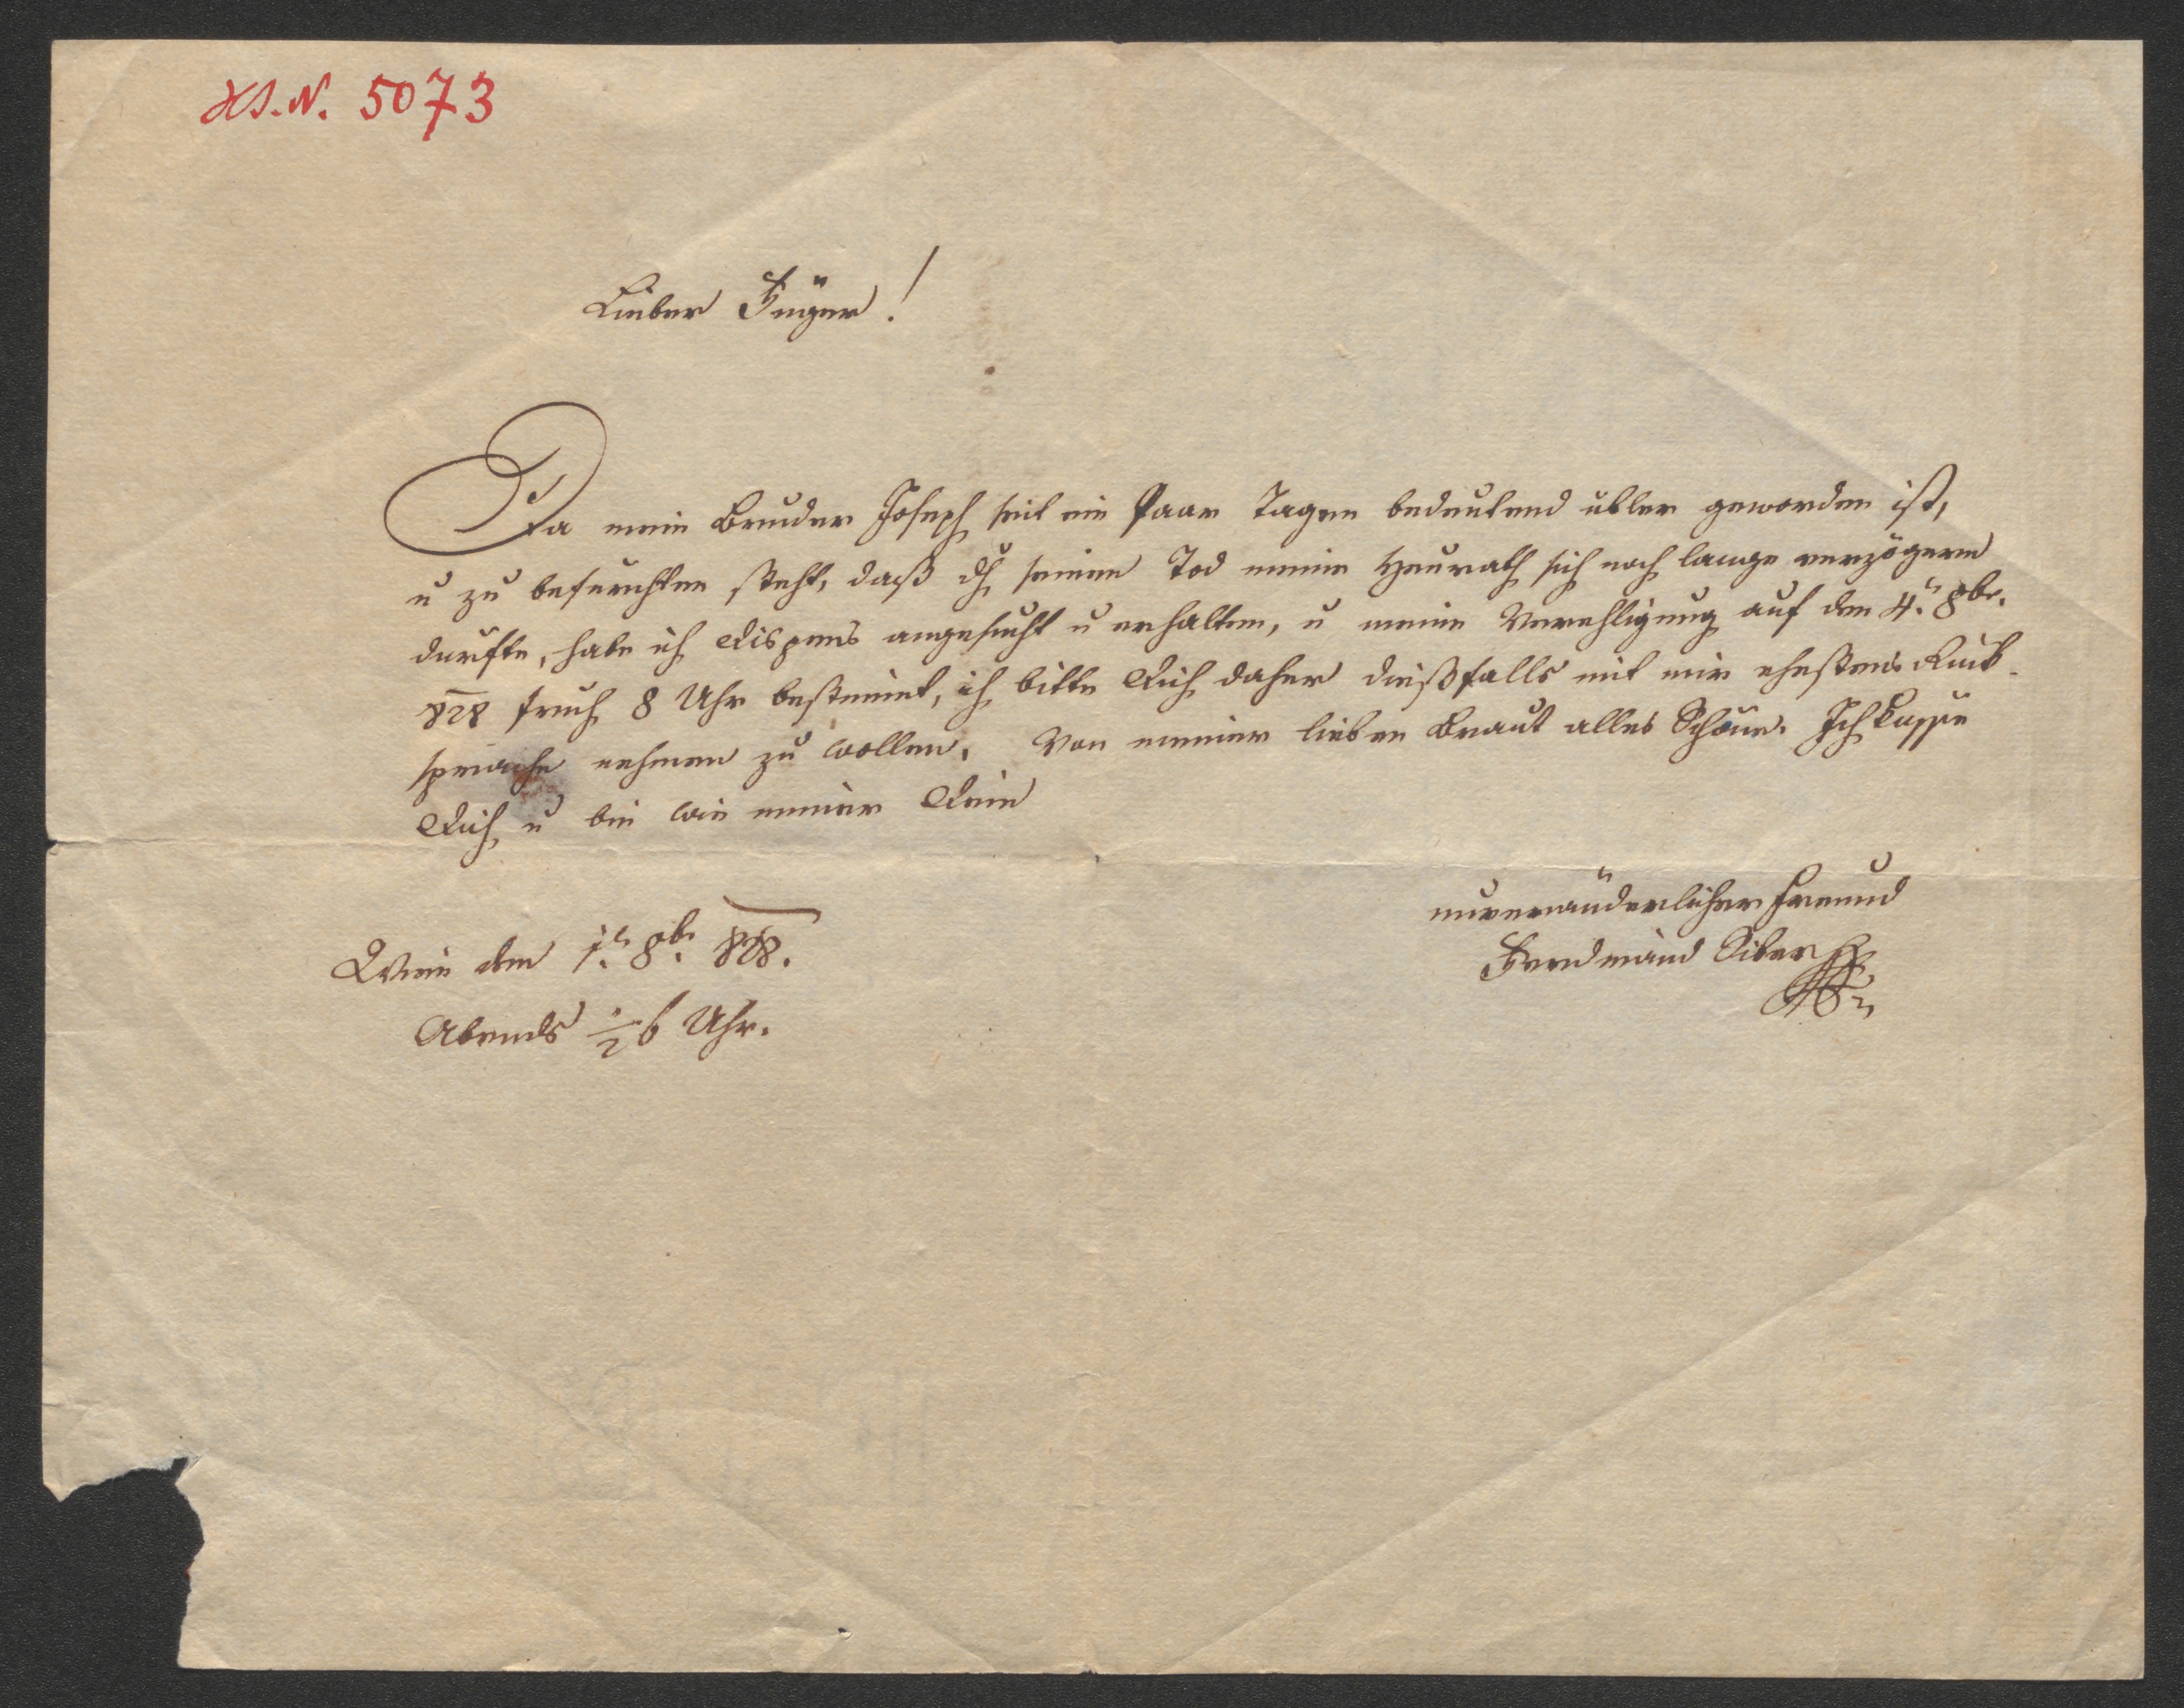 HS. N. 5073
Lieber Füger!
Da mein Bruder Joseph seit ein Paar Tagen bedeutend übler geworden ist,
u zu befürchten steht, daß dh seinen Tod meine Heurath sich noch lange verzögern
dürfte, habe ich Dispens angesucht u erhalten, u meine Verehligung auf den 4t. 8br.
828 fruh 8 Uhr bestimmt, ich bitte Dich daher dießfalls mit mir ehestens Rück-
sprache nehmen zu wollen. Von meiner lieben Braut alles Schöne. Ich küsse
Dich u bin wie immer Dein
unveränderlicher Freund
Ferdinand Siber
Wien den 1t. 8b. 828.
Abends ½ 6 Uhr.